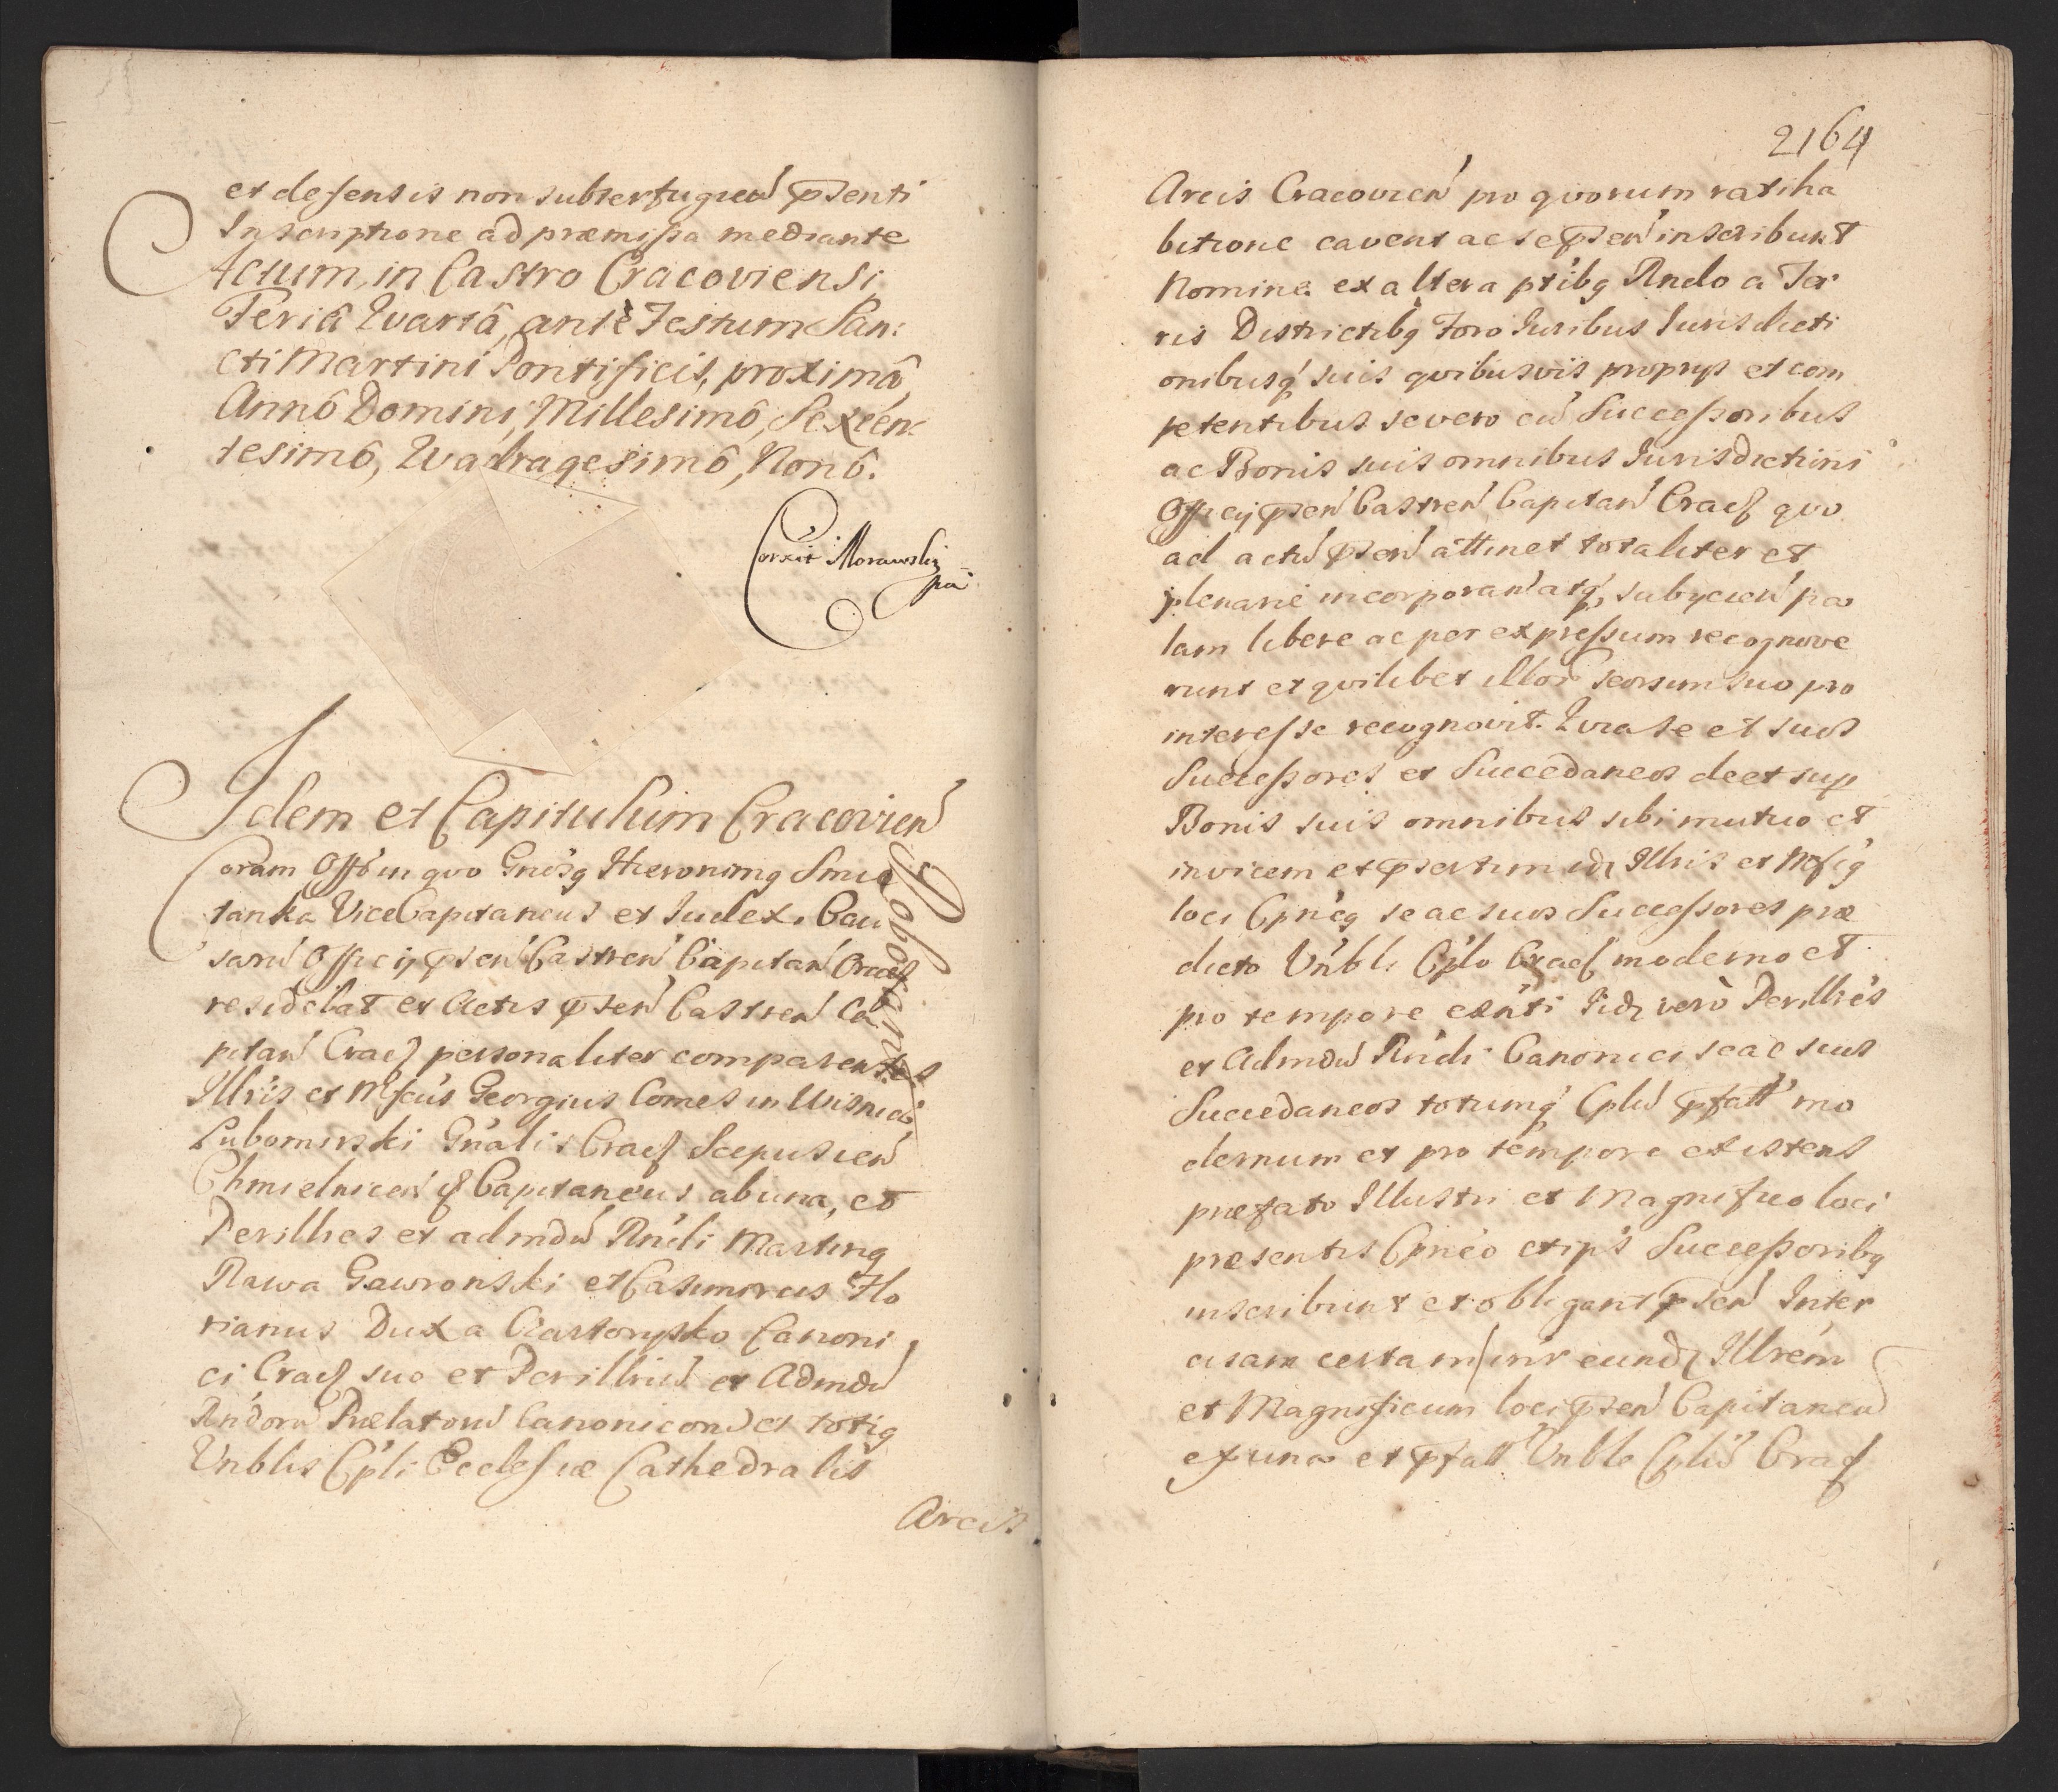 et defensis non subterfugień pŝenti
Inscriptione ad præmissa mediante
Actum, in Castro Cracoviensi
Feriâ Qvartâ, antè Festum San:
cti Martini Pontificis, proximâ
Annô Domini, Millesimô, Sexcen:
tesimô, Qvadragesimô, Nonô.
Corxit Morawsky
pa
Idem et Capitulum Cracovień
Coram Offo in quo Gnosq Hieronimq Smie
tanka ViceCapitaneus et Iudex Cau
sarũ Officij pŝeń Castreń Capitań Cracȝ
residebat et Actis pŝeń Castreń Ca
pitań Cracȝ personaliter comparentes
Roboratur
Illris et Mfcus Georgius Comes in Wisnicz
Lubomirski Gnalis Cracȝ Scepusień
Chmielniceń ȝ Capitaneus ab una, et
Perillres et admdũ Rndi Martinq
Rawa Gawronski et Casimirus Flo
rianus Dux a Czartorysko Canoni
ci Cracȝ suo et Perillriũ et Admdũ
Rndorũ Prælatorũ Canonicorũ et totiq
Vnblis Cpli Ecclesiæ Cathedralis
Arcis
2164
Arcis Cracovień pro qvorum ratiha
bitione cavent ac se pŝeń inscribunt
Nomine ex altera ptibq Rndo a Ter
ris Districtibq Foro Iuribus Iurisdicti
onibusq suis qvibusvis proprys et com
petentibus se vero cũ Successoribus
ac Bonis suis omnibus Iurisdictioni
Officij pŝeń Castreń Capitań Cracȝ qvo
ad actũ pŝeń attinet totaliter et
plenarie incorporań atq, subycień pa
lam libere ac per expressum recognove
runt et qvilibet illorũ seorsum suo pro
interesse recognovit. Qvia se et suos
Successores et Succedaneos de et sup
Bonis suis omnibus sibi mutuo et
invicem et pŝertim idȝ Illris et Mficq
loci Cpneq se ac suos Successores præ
dicto Vnbli Cplo Cracȝ moderno et
pro tempore exnti Iidȝ verò Perillres
et Admdũ Rndi Canonici se ac suos
Succedaneos totumq Cplũ pfatt mo
dernum et pro tempore existens
præfato Illustri et Magnifico loci
præsentis Cpneo et ips Successoribq
inscribunt et obligant pŝeń Inter
cisam certam intr eundȝ Illrem
et Magnificum loci pŝeń Capitaneũ
ex una et pfatt Vnble Cplũ Cracȝ